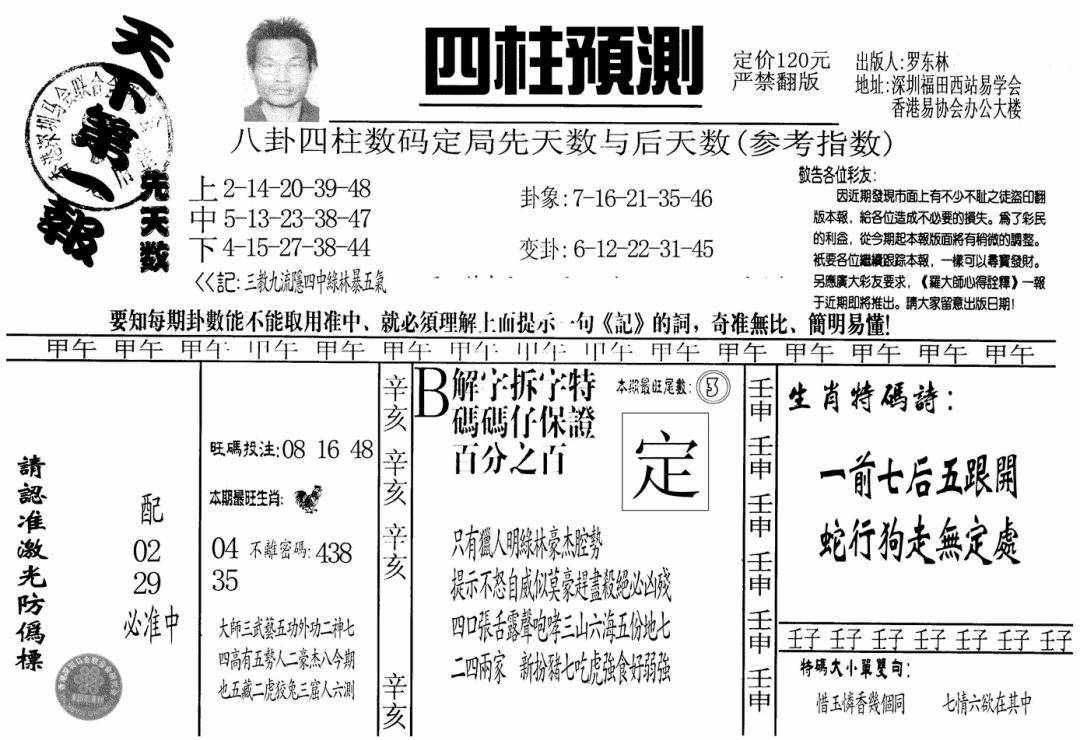 天下第一報
四柱預測
定价120元
严禁翻版
出版人:罗东林
地址:深圳福田西站易学会
香港易协会办公大楼
八卦四柱数码定局先天数与后天数(参考指数)
先天数
上 2-14-20-39-48
中 5-13-23-38-47
下 4-15-27-38-44
卦象:7-16-21-35-46
变卦:6-12-22-31-45
<<記:三教九流隱四中綠林暴五氣
敬告各位彩友:
因近期發現市面上有不少不耻之徒盜印翻
版本報,給各位造成不必要的損失。為了彩民
的利益,從今期起本報版面將有稍微的調整。
衹要各位繼續跟踪本報,一樣可以尋寶發財。
另應廣大彩友要求,《羅大師心得詮釋》一報
于近期即將推出。請大家留意出版日期!
要知每期卦數能不能取用准中、就必須理解上面提示一句《記》的詞,奇准無比、簡明易懂!
甲午 甲午 甲午 甲午 甲午 甲午 甲午 甲午 甲午 甲午 甲午 甲午 甲午 甲午 甲午
請認准激光防僞標
配
02
29
必准中
旺碼投注:08 16 48
本期最旺生肖:
04 不離密碼:438
35
大師三武藝五功外功二神七
四高有五勢人二豪杰八今期
也五藏二虎狡兔三窟人六測
辛亥
辛亥
辛亥
辛亥
B
解字拆字特
碼碼仔保證
百分之百
本期最旺尾數:3
定
只有獵人明綠林豪杰腔勢
提示不怒自威似莫豪趕盡殺絕必凶殘
四口張舌露聲咆哮三山六海五份地七
二四兩家 新扮豬七吃虎強食好弱強
壬申
壬申
壬申
壬申
壬申
壬申
生肖特碼詩:
一前七后五跟開
蛇行狗走無定處
壬子 壬子 壬子 壬子 壬子 壬子 壬子
特碼大小單雙句:
惜玉憐香幾個同 七情六欲在其中